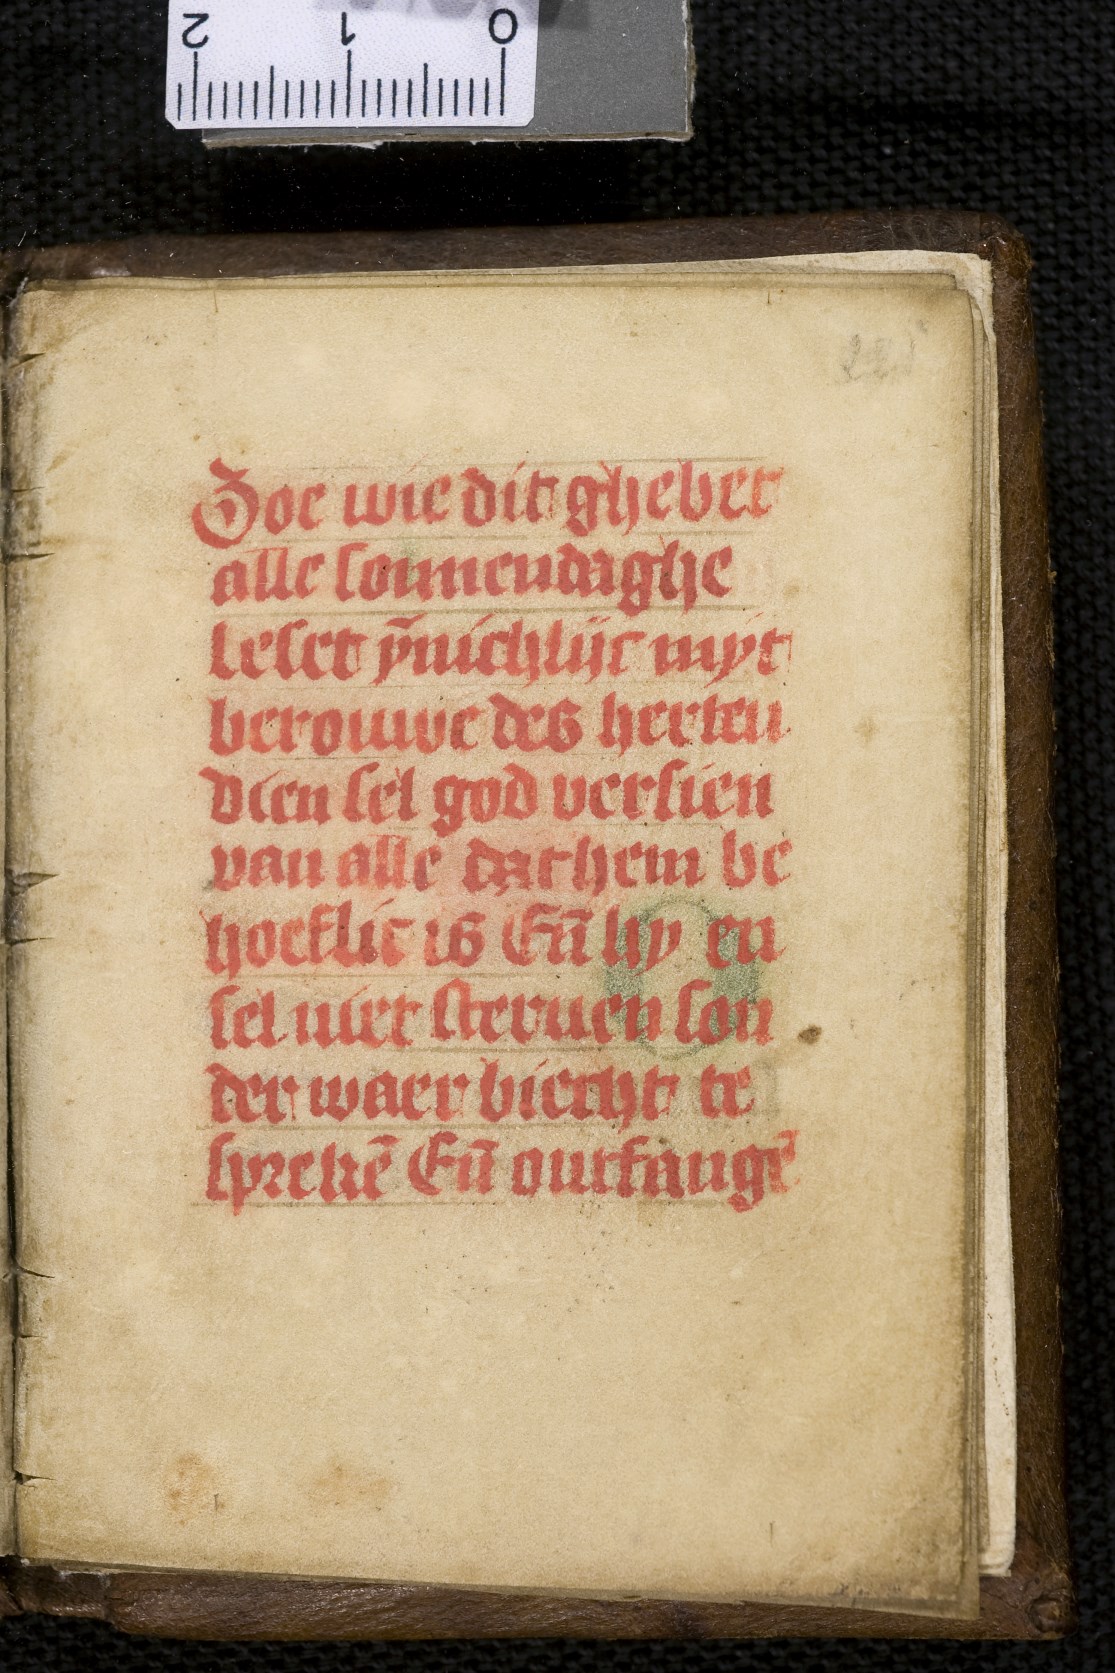 2 1 0
Zoe wie dit ghebet
alle sonnendaghe
leset ỹnichlijc myt
berouwe des herten
dien sel god versien
van alle dat hem be
hoeflic is En̄ hy en
sel niet steruen son
der waer biecht te
sprekē En̄ ontfangē